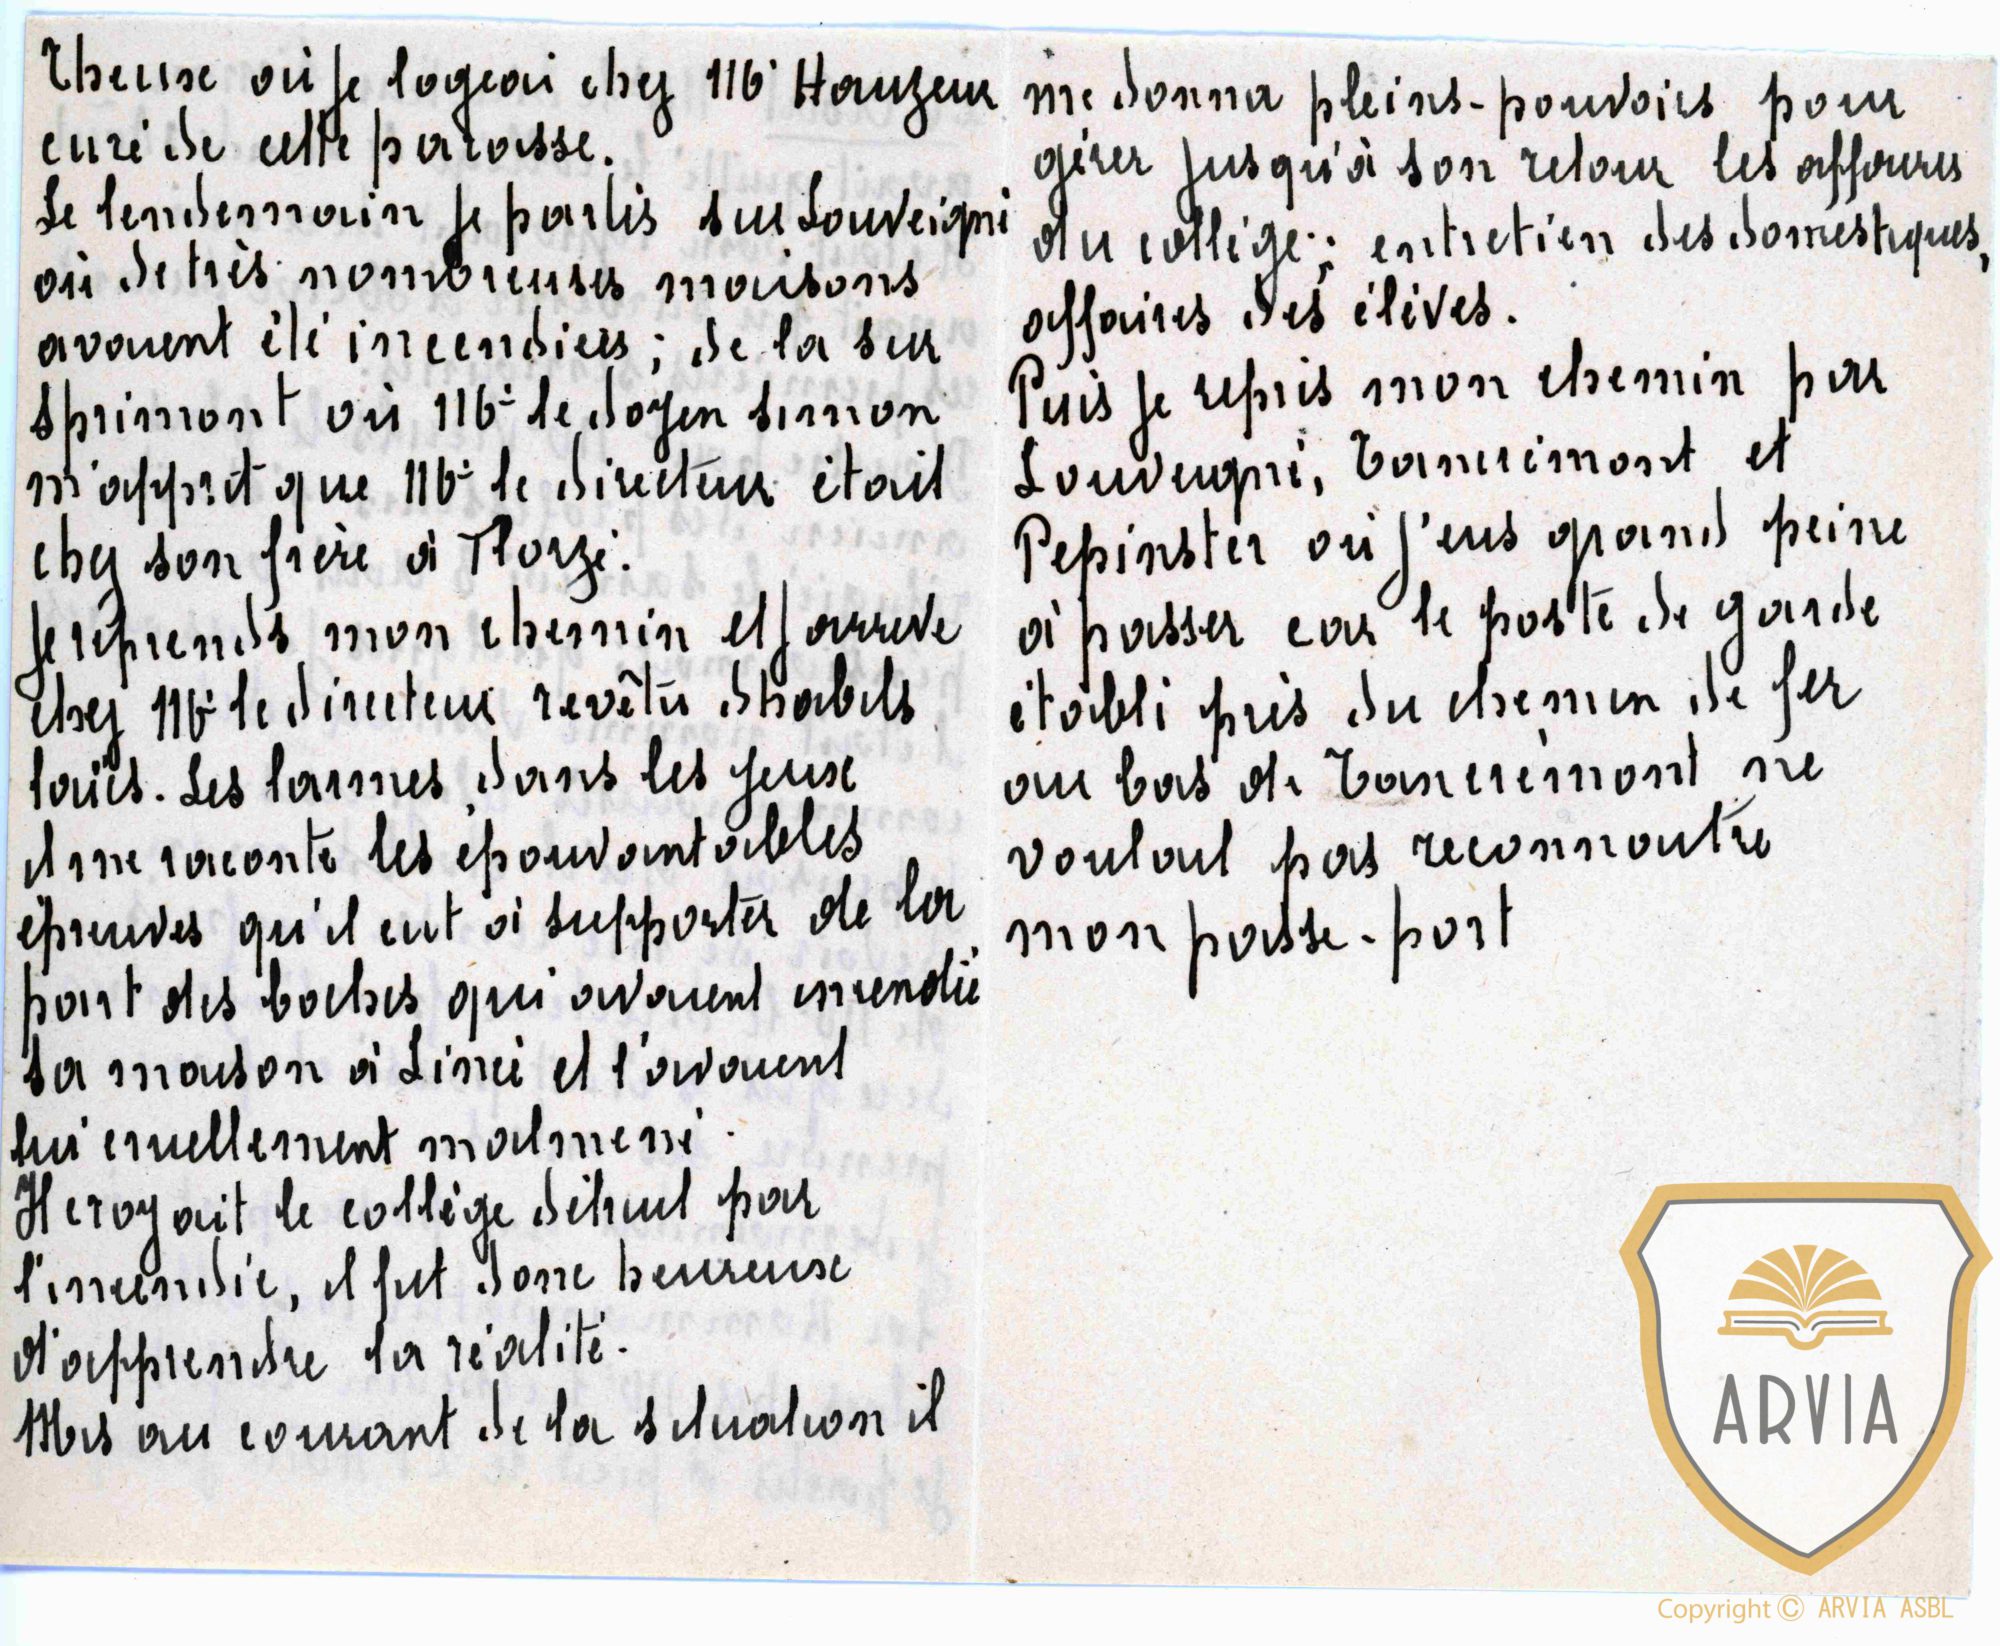 Theuse où je logeai chez Mr Hauzeur
curé de cette paroisse.
Le lendemain je partis sur Louveigné
où de très nombreuses maisons
avaient été incendiées ; de la sur
Sprimont où Mr le doyen Simon
m'apprit que Mr le directeur était
chez son frère à Florzé.
Je reprends mon chemin et j'arrive
chez Mr le directeur revêtu d'habits
laïcs. Les larmes dans les yeux
il me raconte les épouvantables
épreuves qu'il eut à supporter de la
part des boches qui avaient incendié
sa maison à Lincé et l'avaient
lui cruellement malmené.
Il croyait le collège détruit par
l'incendie, il fut donc heureux
d'apprendre la réalité.
Mis au courant de la situation il
me donna pleins-pouvoirs pour
gérer jusqu'à son retour les affaires
du collège ; entretien des domestiques,
affaires des élèves.
Puis je repris mon chemin par
Louveigné, Tancrémont et
Pepinster où j'eus grand peine
à passer car le poste de garde
établi près du chemin de fer
au bas de Tancrémont ne
voulait pas reconnaître
mon passe-port
ARVIA
Copyright © ARVIA ASBL